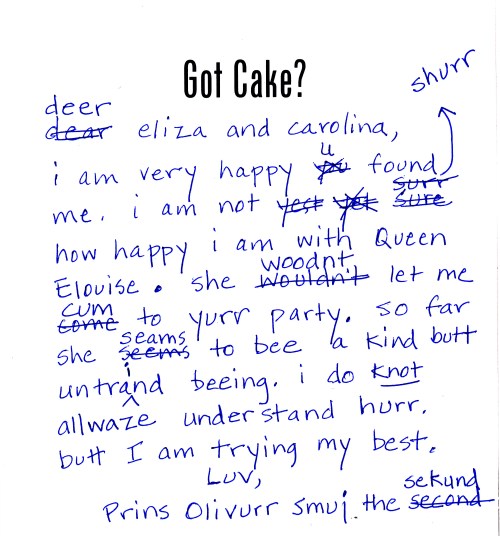 Got Cake?
shurr
deer
dear eliza and carolina,
u
i am very happy found
surr
me. i am not sure
how happy i am with Queen
woodnt
Elouise. she wouldn't let me
cum
come to yurr party. so far
seams
she seems to bee a kind butt
i
untrand beeing. i do knot
allwaze understand hurr.
butt I am trying my best.
Luv,
sekund
Prins Olivurr smuj. the second